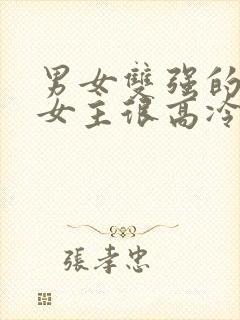 男女雙強的
女主很高冷
張孝忠